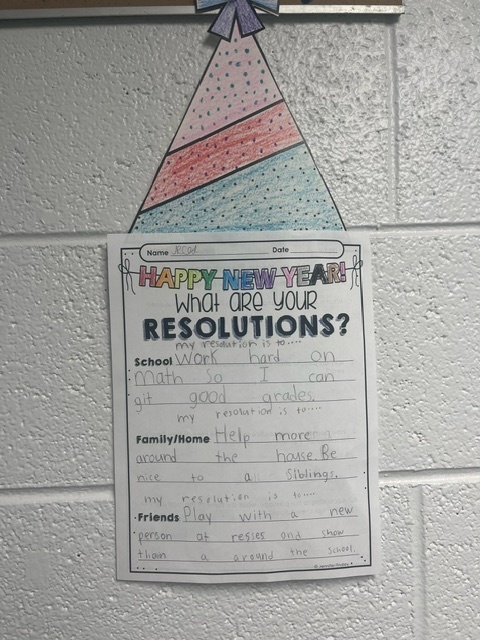 Name Date
HAPPY NEW YEAR!
What ARE YOUR
RESOLUTIONS?
my resolution is to....
School Work hard on
Math So I can
git good grades.
my resolution is to....
Family/Home Help more
around the house. Be
nice to a Siblings.
my resolution is to....
Friends Play with a new
person at reses and show
tham a around the school.